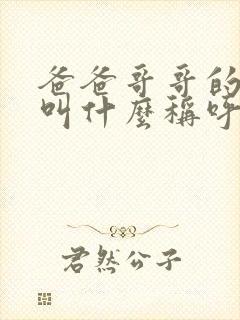 爸爸哥哥的
叫什麼稱呼
君然公子